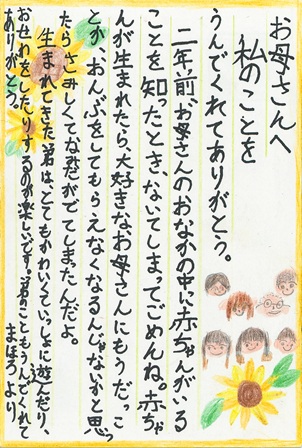 お母さんへ
私のことを
うんでくれてありがとう。
二年前、お母さんのおなかの中に赤ちゃんがいる
ことを知ったとき、ないてしまってごめんね。赤ちゃ
んが生まれたら、大好きなお母さんにもうだっこ
とか、おんぶをしてもらえなくなるんじゃないかと思っ
たらさみしくてなみだがでてしまったんだよ。
生まれてきた弟は、とてもかわいくていっしょに遊んだり、
おせわをしたりするのが楽しいです。弟のこともうんでくれて
ありがとう。
まほろより